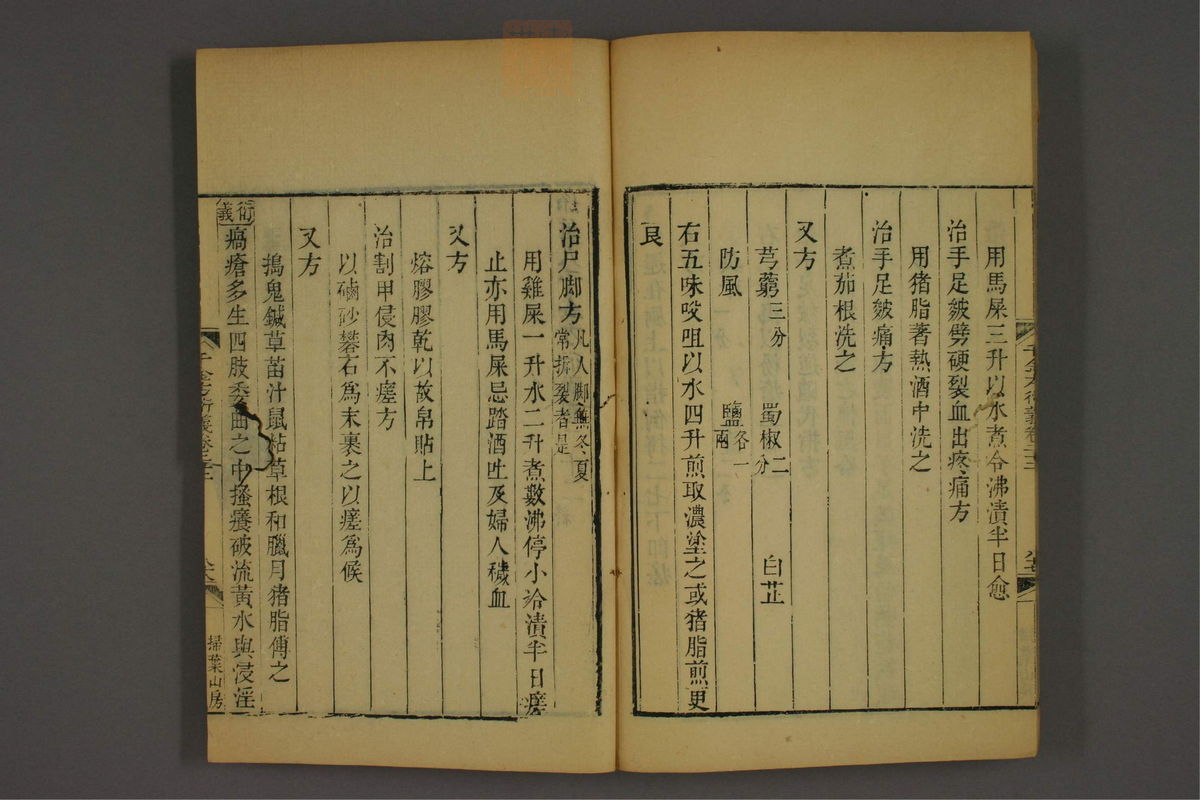 用馬屎三升以水煮令沸漬半日愈
治手足皴劈硬裂血出疼痛方
用猪脂著熱酒中洗之
治手足皴痛方
煮茄根洗之
又方
芎藭三分 蜀椒二分 白芷
防風 鹽各一兩
右五味㕮咀以水四升煎取濃塗之或猪脂煎更
良
治尸脚方凡人脚無冬夏常拆裂者是
用雞屎一升水二升煮數沸停小冷漬半日瘥
止亦用馬屎忌踏酒吐及婦人穢血
又方
熔膠膠乾以故帛貼上
治割甲侵肉不瘥方
以硇砂礬石為末裹之以瘥為候
又方
搗鬼鍼草苗汁鼠粘草根和臘月猪脂傅之
衍義
瘑瘡多生四肢委曲之中搔癢破流黃水與浸淫
千金方衍義卷之二十二
掃葉山房